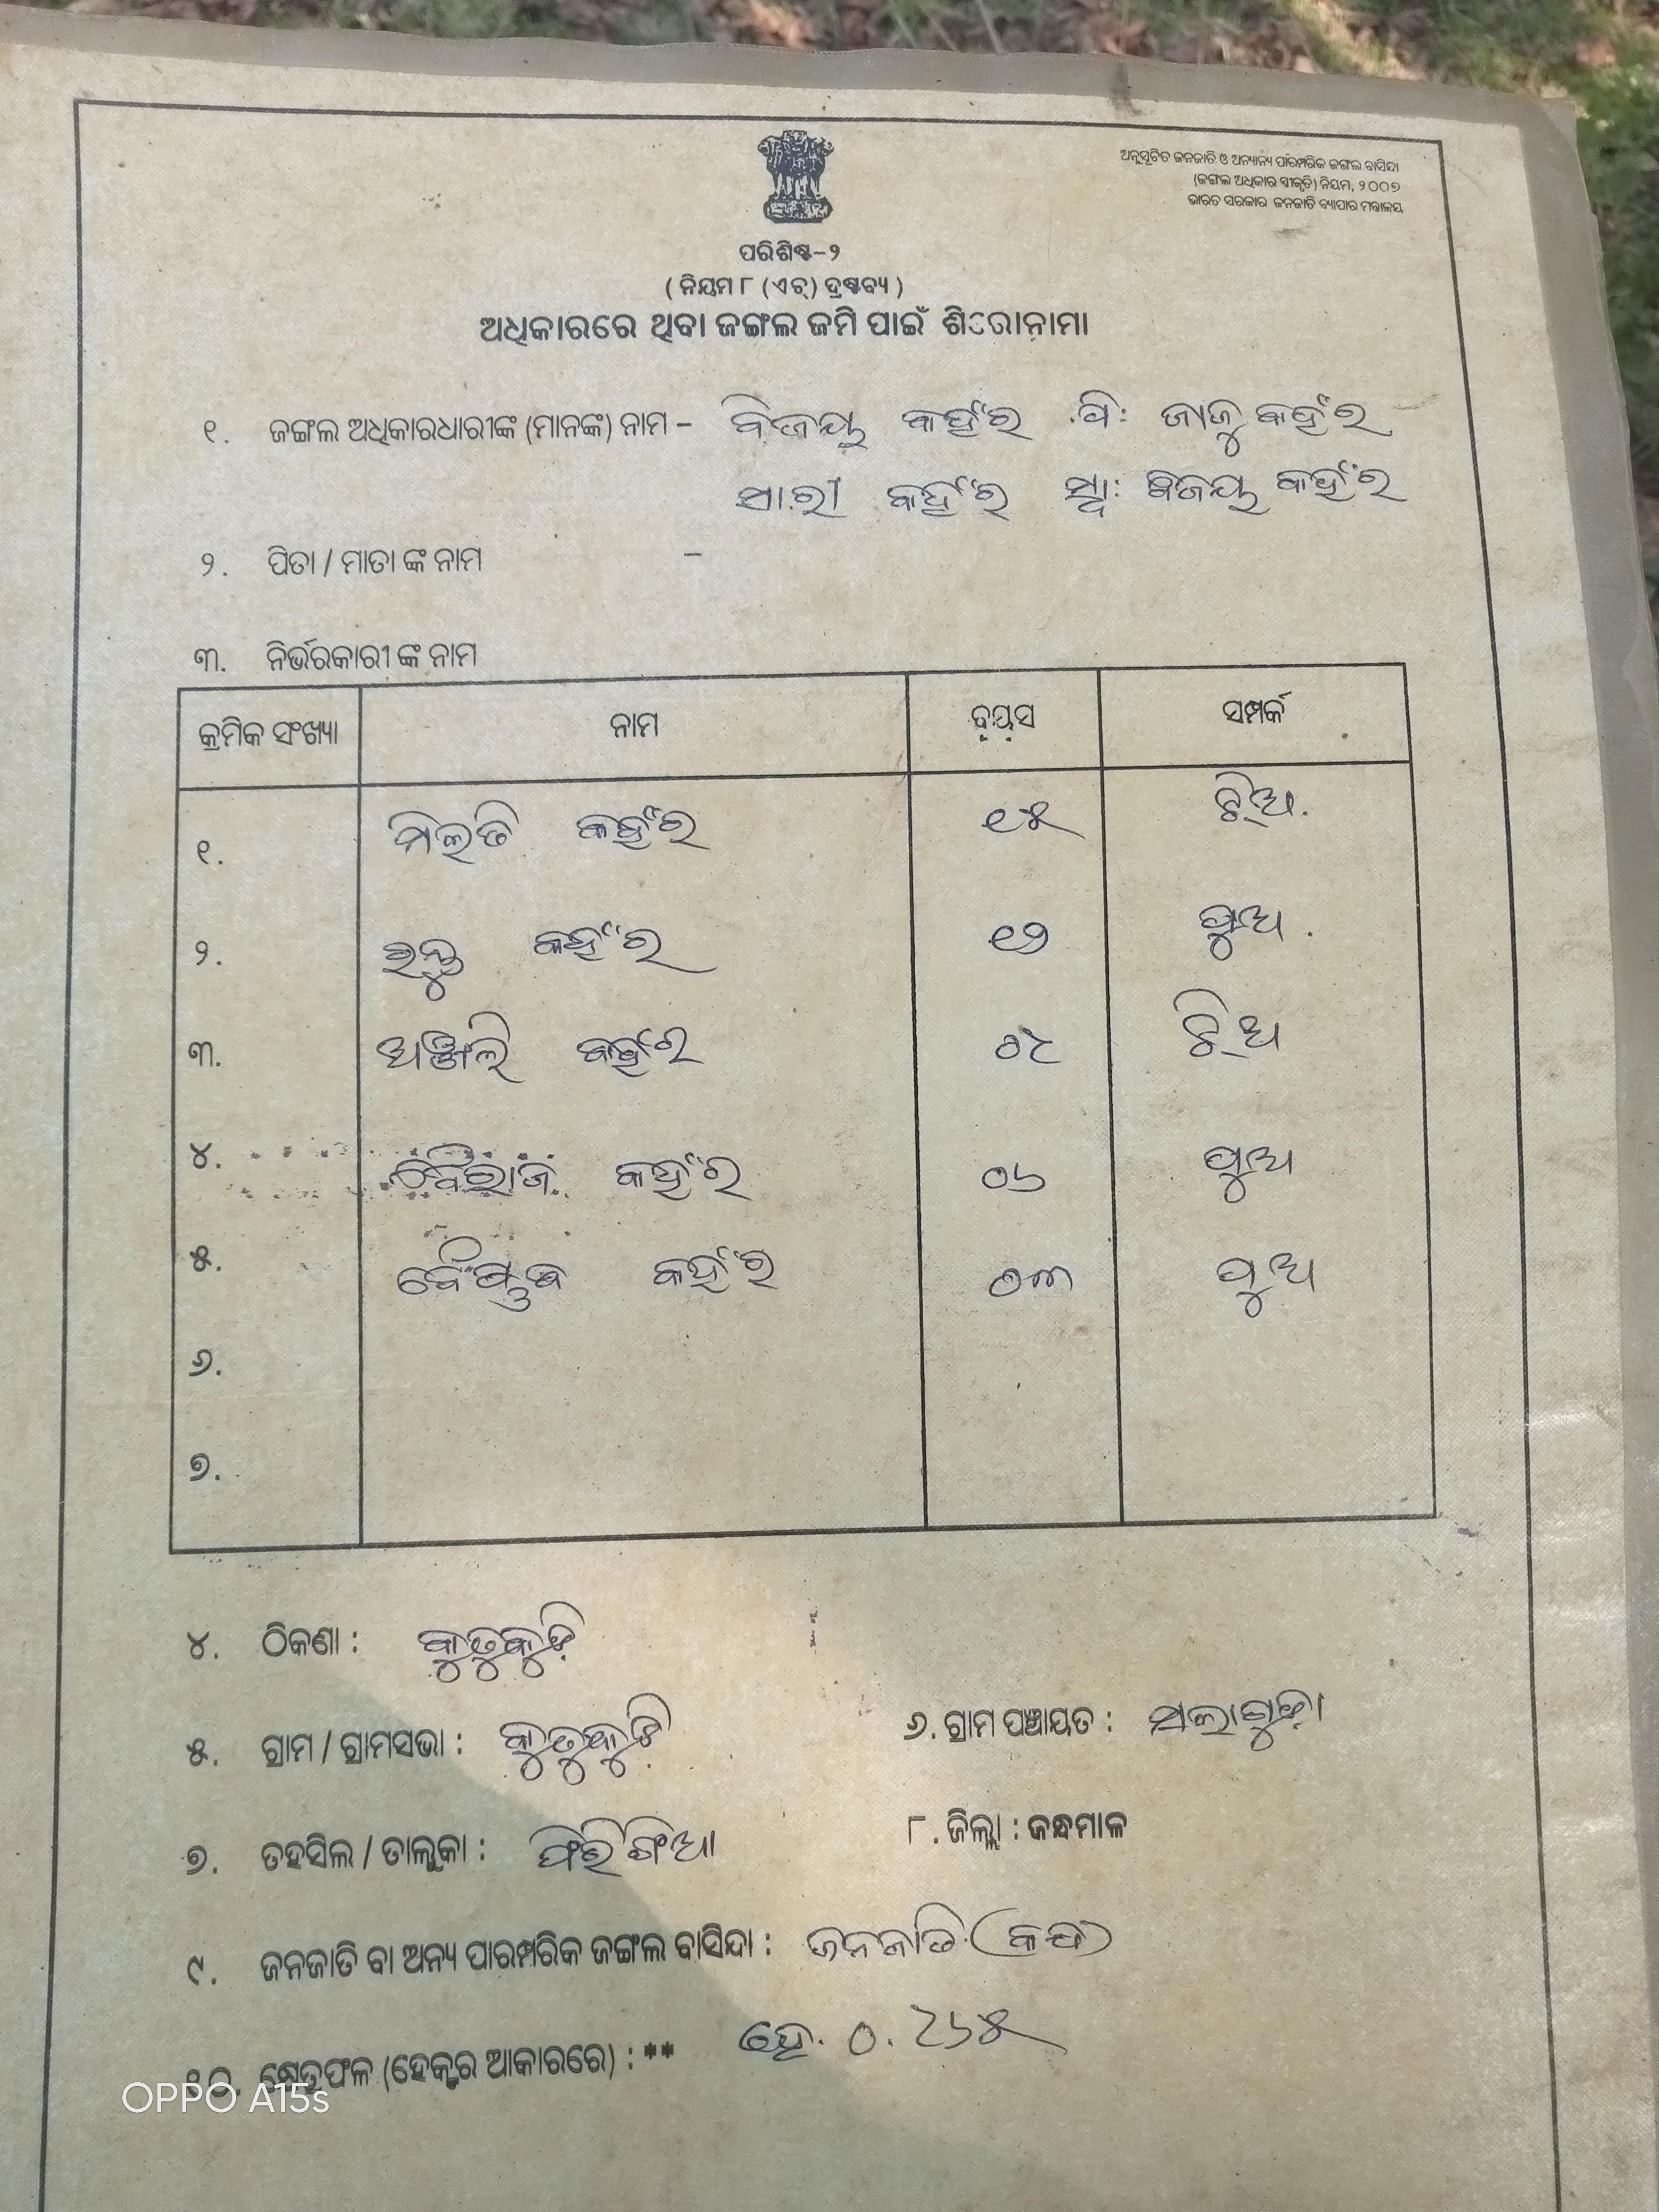 ଅନୁସୂଚିତ ଜନଜାତି ଓ ଅନ୍ୟାନ୍ୟ ପାରମ୍ପରିକ ଜଙ୍ଗଲ ବାସିନ୍ଦା
(ଜଙ୍ଗଲ ଅଧିକାର ସ୍ୱୀକୃତି) ନିୟମ, ୨୦୦୭
ଭାରତ ସରକାର ଜନଜାତି ବ୍ୟାପାର ମନ୍ତ୍ରାଳୟ
ପରିଶିଷ୍ଟ-୨
(ନିୟମ ୮ (ଏଚ୍) ଦ୍ରଷ୍ଟବ୍ୟ)
ଅଧିକାରରେ ଥିବା ଜଙ୍ଗଲ ଜମି ପାଇଁ ଶିରୋନାମା
୧. ଜଙ୍ଗଲ ଅଧିକାରଧାରୀଙ୍କ (ମାନଙ୍କ) ନାମ - ବିଜୟ କହଁର ପି: ଜାଜୁ କହଁର
ସାରୀ କହଁର ସ୍ୱା: ବିଜୟ କହଁର
୨. ପିତା / ମାତା ଙ୍କ ନାମ -
୩. ନିର୍ଭରକାରୀ ଙ୍କ ନାମ
କ୍ରମିକ ସଂଖ୍ୟା ନାମ ବୟସ ସମ୍ପର୍କ
୧. ମିଲତି କହଁର ୧୫ ଝିଅ.
୨. ରନ୍ତୁ କହଁର ୧୨ ପୁଅ.
୩. ଅଞ୍ଜଲି କହଁର ୦୯ ଝିଅ
୪. ବୈରାଜ କହଁର ୦୬ ପୁଅ
୫. ବୈଷ୍ଣବ କହଁର ୦୩ ପୁଅ
୬.
୭.
୪. ଠିକଣା : କୁତୁକୁଢ଼ି
୫. ଗ୍ରାମ / ଗ୍ରାମସଭା : କୁତୁକୁଢ଼ି ୬. ଗ୍ରାମ ପଞ୍ଚାୟତ :
୭. ତହସିଲ / ତାଲୁକା : ଫିରିଙ୍ଗିଆ ୮. ଜିଲ୍ଲା : କନ୍ଧମାଳ
୯. ଜନଜାତି ବା ଅନ୍ୟ ପାରମ୍ପରିକ ଜଙ୍ଗଲ ବାସିନ୍ଦା : ଜନଜାତି (କନ୍ଧ)
୧୦. କ୍ଷେତ୍ରଫଳ (ହେକ୍ଟର ଆକାରରେ) : ** ହେ. ୦.୨୬୫
OPPO A15s